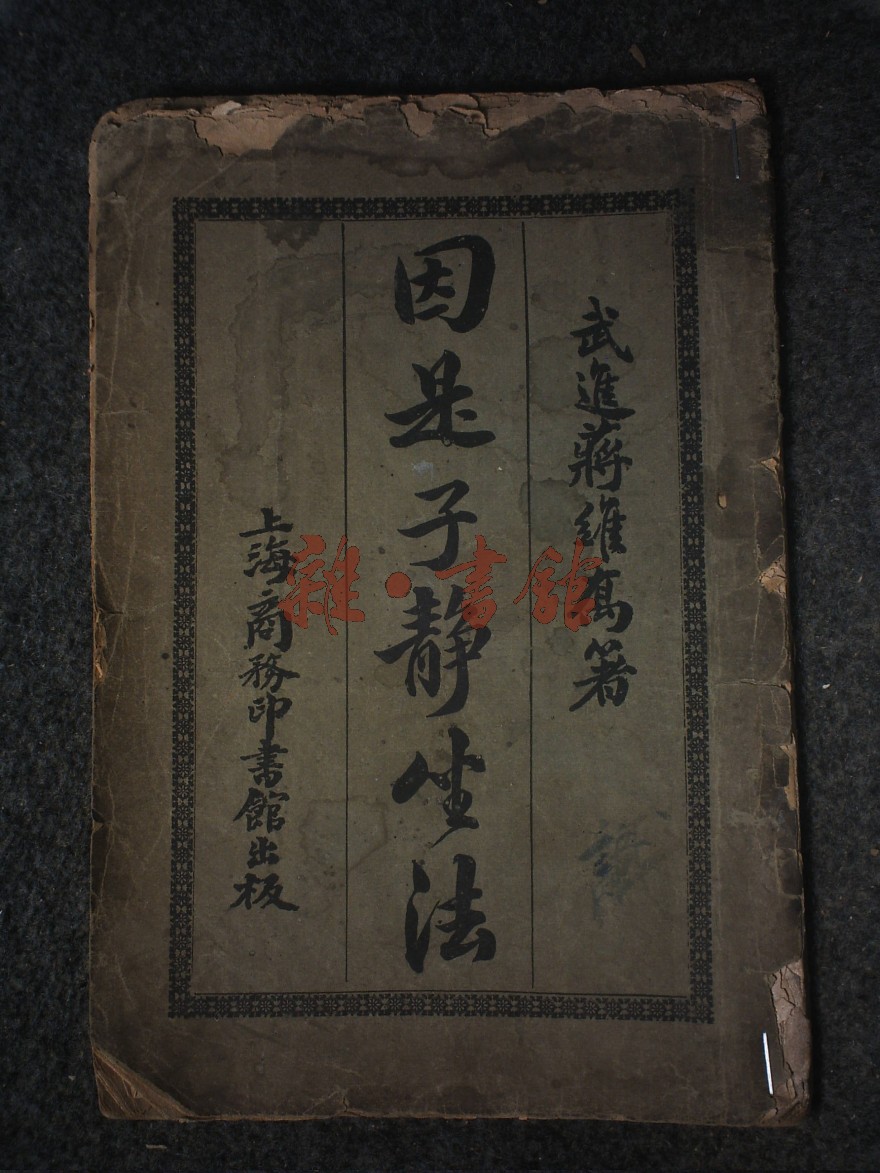 武進蔣維喬著
因是子静坐法
上海商務印書館出板
雜·書館